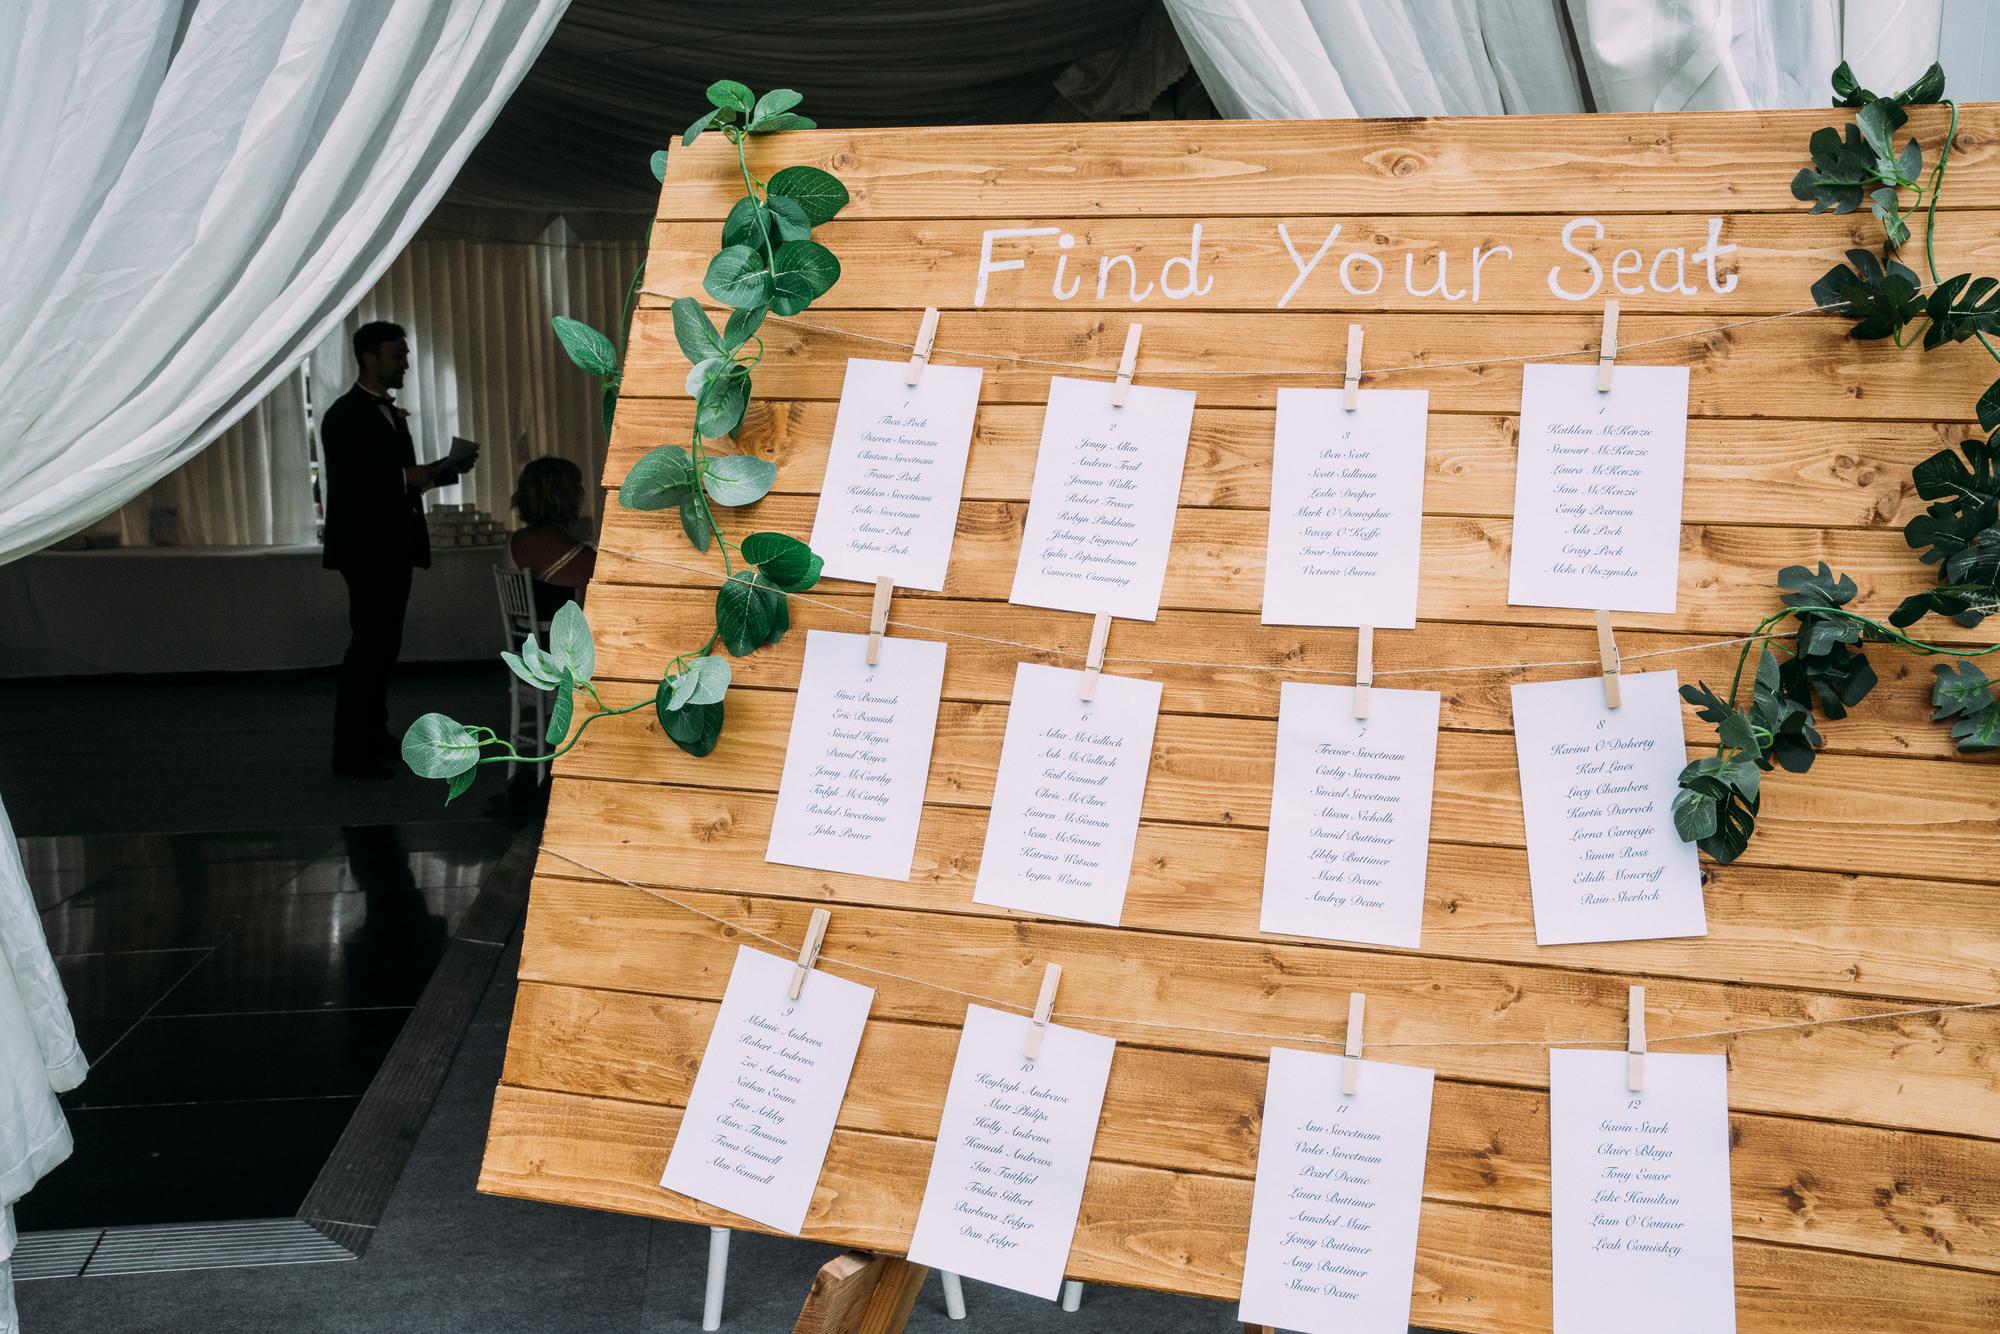 Find Your Seat
1
Thea Pock
Darren Sweetnam
Clinton Sweetnam
Fraser Pock
Kathleen Sweetnam
Leslie Sweetnam
Alaina Pock
Stephen Pock
2
Jenny Allan
Andrew Trail
Joanna Waller
Robert Fraser
Robyn Pinkham
Johnny Lingwood
Lydia Papandrianou
Cameron Cumming
3
Ben Scott
Scott Sullivan
Leslie Draper
Mark O'Donoghue
Stacey O'Keeffe
Ivor Sweetnam
Victoria Burns
4
Kathleen McKenzie
Stewart McKenzie
Laura McKenzie
Iain McKenzie
Emily Pearson
Aila Pock
Craig Pock
Aleks Obszynska
5
Gina Beamish
Eric Beamish
Sinéad Hayes
David Hayes
Jenny McCarthy
Tadgh McCarthy
Rachel Sweetnam
John Power
6
Ailsa McCulloch
Ash McCulloch
Gail Gemmell
Chris McClure
Lauren McGowan
Sean McGowan
Katrina Watson
Angus Watson
7
Trevor Sweetnam
Cathy Sweetnam
Sinéad Sweetnam
Alison Nicholls
David Buttimer
Libby Buttimer
Mark Deane
Audrey Deane
8
Karina O'Doherty
Karl Lines
Lucy Chambers
Kurtis Darroch
Lorna Carnegie
Simon Ross
Eilidh Moncrieff
Rain Sherlock
9
Melanie Andrews
Robert Andrews
Zoë Andrews
Nathan Evans
Lisa Arkley
Claire Thomson
Fiona Gemmell
Alan Gemmell
10
Kayleigh Andrews
Matt Philips
Holly Andrews
Hannah Andrews
Ian Faithful
Trisha Gilbert
Barbara Ledger
Dan Ledger
11
Ann Sweetnam
Violet Sweetnam
Pearl Deane
Laura Buttimer
Annabel Muir
Jenny Buttimer
Amy Buttimer
Shane Deane
12
Gavin Stark
Claire Blaya
Tony Ensor
Luke Hamilton
Liam O'Connor
Leah Comiskey